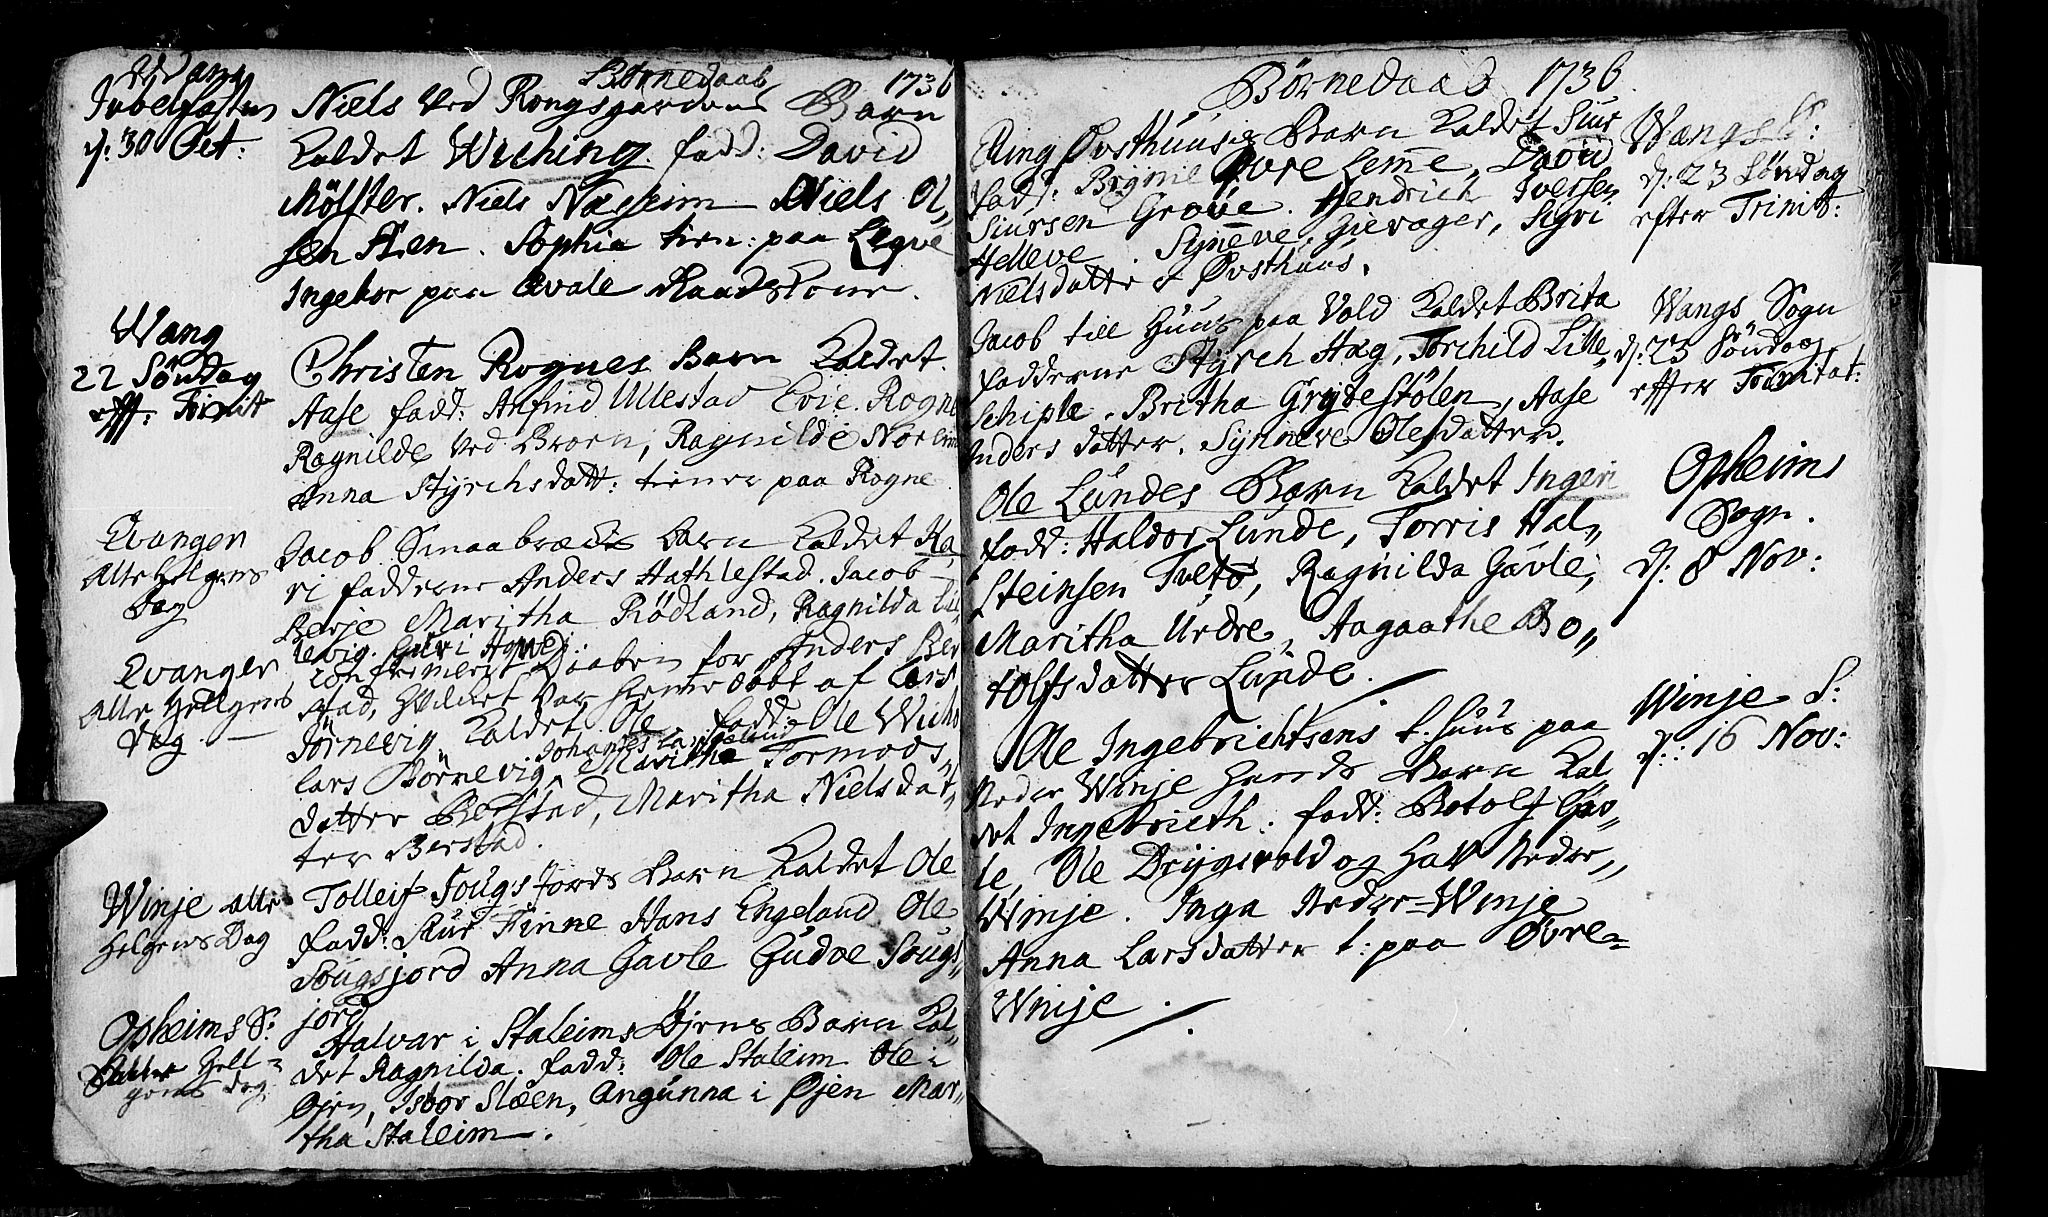 Börnedaab 1736
Wang
Jubelfasten
d: 30 Oct:
Niels ved Rongsgardens Barn
kaldet Wiching. fadd: David
Mölster. Niels Næsheim Niels Ol„
sen Steen. Sophia tien: paa Legve
Ingebor paa Qvale Raadskone.
Wang
22 Söndag
eff: Trinit
Christen Rognes Barn kaldet
Aase fadd: Anfind Ullestad Evie Rogne
Ragnilde ved Broen, Ragnilde Norheim
Anna Styrchsdatt: tiener paa Rogne
Evanger
Alle Helgens
Dag
Jacob Smaabræcke Barn kaldet Ka„
ri fadderne Anders Hathlestad. Jacob
Berje Maritha Rödland, Ragnilda Lil„
levig. Guri Agne
Evanger
Alle Helgens
Dag
Confirmerit Daaben for Anders Ber
stad, hvilket var hjemedöbt af Lars
Jörnevig kaldet Ole. fadd: Ole Wichs
Johannes Langeland
Lars Börnevig Maritha Tormods„
datter Berstad, Maritha Nielsdat„
ter Berstad.
Winje alle
Helgens Dag
Tollef Sougsjords Barn kaldet Ole
fadd: Siur Finne Hans Engeland Ole
Sougsjord Anna Gavle Gudve Sougs„
jord
Opheims S:
Helgens dag.
Halvar i Staleims Öjens Barn kal„
det Ragnilda. fadd: Ole Staleim Ole i
Öjen, Isbor Slæen, Angunna i Öjen Mar„
tha Staleim.
Börnedaab 1736
Elling Östhuusis Barn kaldet Siur
fadd: Brynie Övre Leme, David
Siursen Grove. Hendrich Iversen
Helleve. Syneve Gievager, Sigvi
Nielsdatter Östhuus.
Wangs S:
d: 23 Söndag
efter Trinit:
Jacob till Huus paa Vold kaldet Brita
fadderne Styrch Hæg, Torchild Lille
Schiple. Britha Grydestölen, Aase
Andersdatter. Synneve Olesdatter.
Wangs Sogn
d: 23 Söndag
efter Trinitat:
Ole Lundes Barn kaldet Ingeri
fadd: Haldor Lunde, Torris Hal„
steinsen Tveto, Ragnilda Gavle,
Maritha Urdre, Aagaathe Bo„
tolfsdatter Lunde.
Opheims
Sogn.
d: 8 Nov:
Ole Ingebrichtsens t. huus paa
Neder Winje hands Barn kal„
det Ingebricth: fadd: Botolf Gav„
le, Ole Drygsvold og Hall Neder„
Winje. Inga Neder=Winje
Anna Larsdatter t: paa Övre=
Winje.
Winje S:
d: 16 Nov: